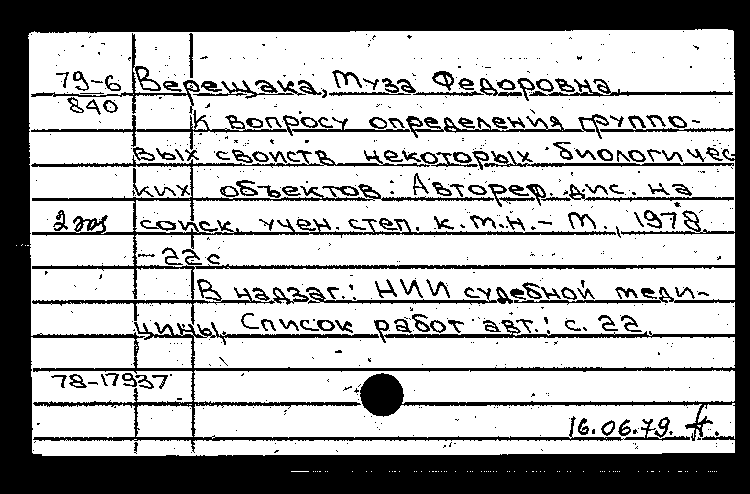 79-6 Верещака, Муза Федоровна.
840
К вопросу определения группо-
вых свойств некоторых биологичес
ких объектов: Автореф. дис. на
2 экз соиск. учен. степ. к.м.н.- М., 1978.
- 22 с.
В надзаг.: НИИ судебной меди-
цины. Список работ авт.: с. 22.
78-17937
16.06.79.